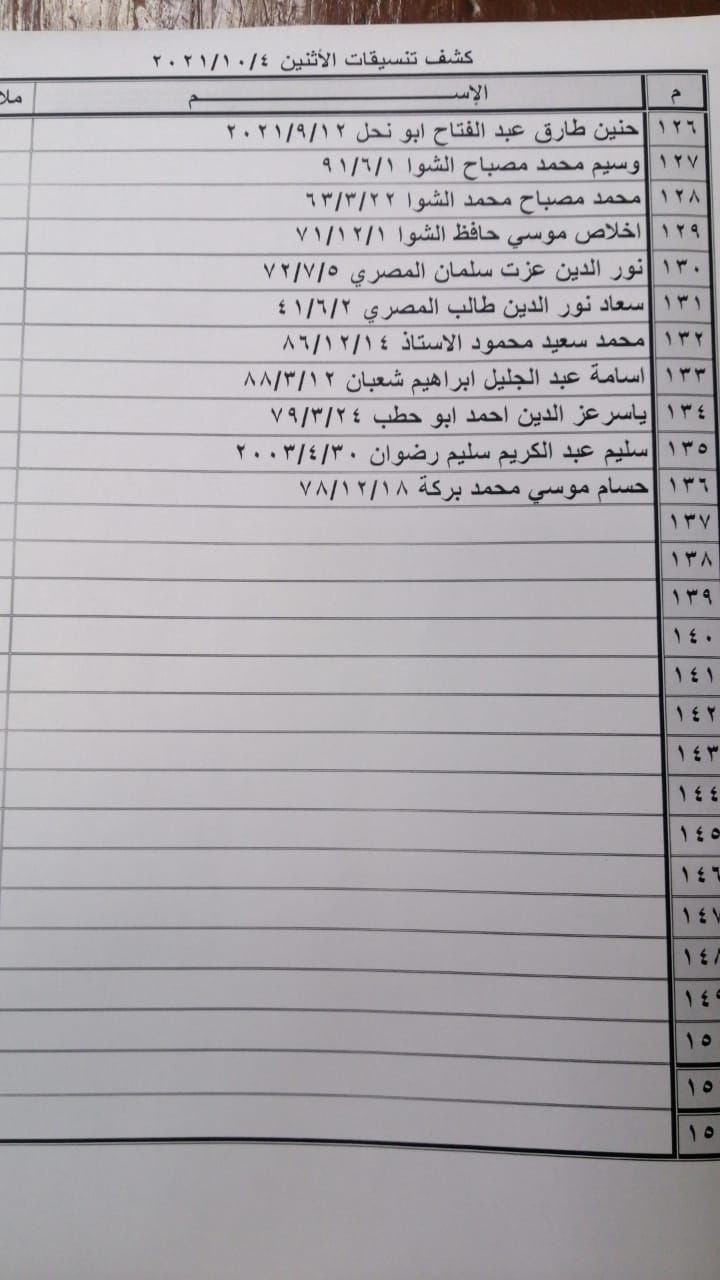 كشف تنسيقات الأثنين ٢٠٢١/١٠/٤
م الإســـــــم ملا
١٢٦ حنين طارق عبد الفتاح ابو نحل ٢٠٢١/٩/١٢
١٢٧ وسيم محمد مصباح الشوا ٩١/٦/١
١٢٨ محمد مصباح محمد الشوا ٦٣/٣/٢٢
١٢٩ اخلاص موسي حافظ الشوا ٧١/١٢/١
١٣٠ نور الدين عزت سلمان المصري ٧٢/٧/٥
١٣١ سعاد نور الدين طالب المصري ٤١/٦/٢
١٣٢ محمد سعيد محمود الاستاذ ٨٦/١٢/١٤
١٣٣ اسامة عبد الجليل ابراهيم شعبان ٨٨/٣/١٢
١٣٤ ياسر عز الدين احمد ابو حطب ٧٩/٣/٢٤
١٣٥ سليم عبد الكريم سليم رضوان ٢٠٠٣/٤/٣٠
١٣٦ حسام موسي محمد بركة ٧٨/١٢/١٨
١٣٧
١٣٨
١٣٩
١٤٠
١٤١
١٤٢
١٤٣
١٤٤
١٤٥
١٤٦
١٤٧
١٤٨
١٤٩
١٥
١٥
١٥